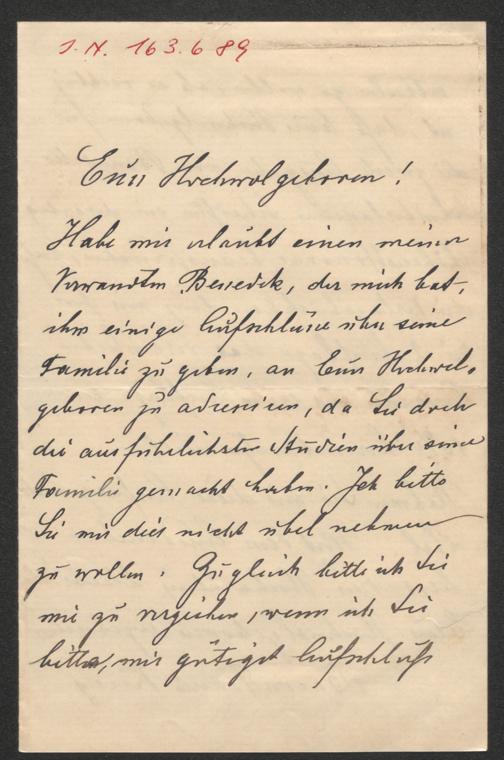 J. N. 163.689
Euer Hochwolgeboren!
Habe mir erlaubt einen meiner
Verwandten Benedek, der mich bat,
ihm einige Aufschlüsse über seine
Familie zu geben, an Euer Hochwol-
geboren zu adressieren, da Sie doch
die ausführlichsten Studien über seine
Familie gemacht haben. Ich bitte
Sie mir dies nicht übel nehmen
zu wollen. Zugleich bitte ich Sie
mir zu verzeihen, wenn ich Sie
bitte, mir gütigst Aufschluss